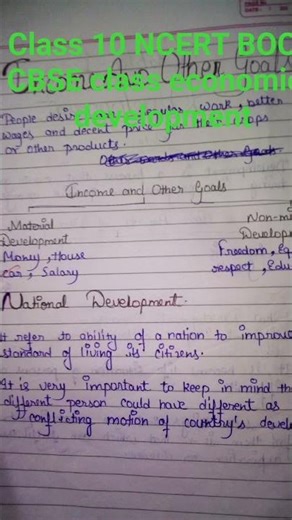 Class 10 NCERT BOO
CBSE class economi
development
Income And Other Goals
People desire regular work, better
wages and decent price for their crops
or other products.
Income and Other Goals
Material
Development
Money, House
car, Salary
Non-m
Develop
Freedom, Eq
respect, Edu
National Development.
It refer to ability of a nation to improv
standard of living its citizens.
It is very important to keep in mind tha
different person could have different as
conflicting motion of country's devel